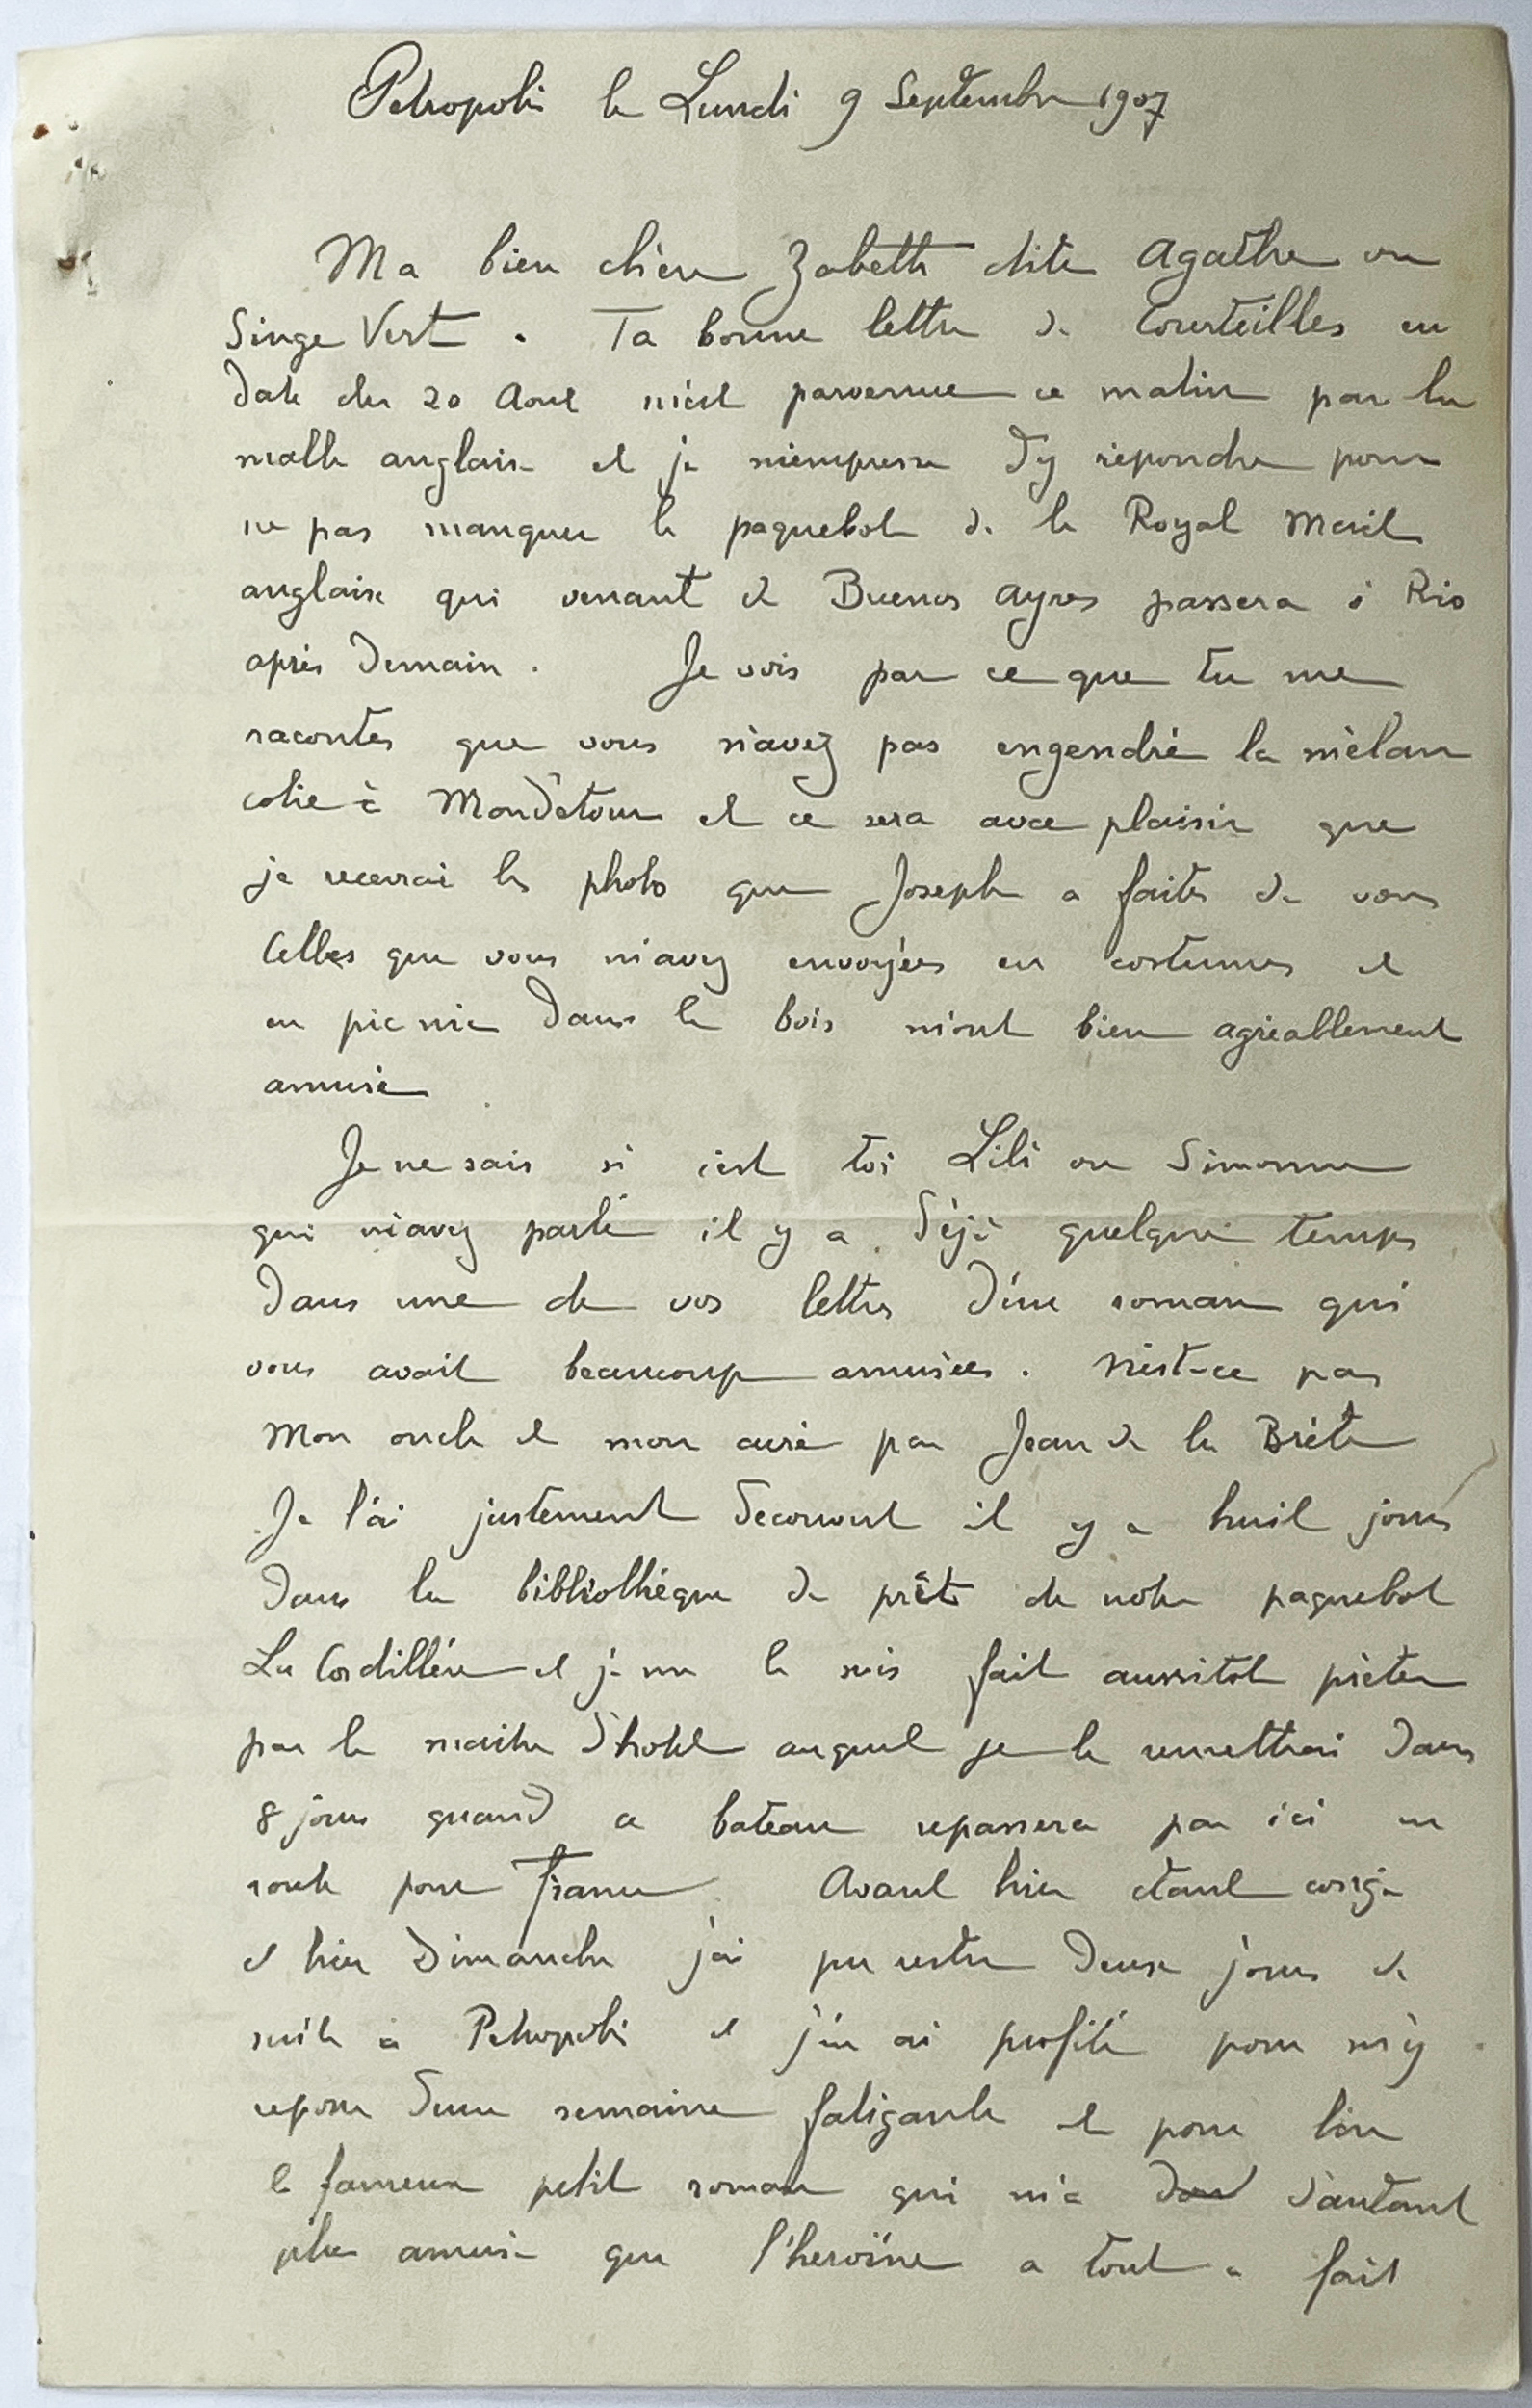 Petropolis le Lundi 9 Septembre 1907
Ma bien chère Zabeth dite Agathe ou
Singe Vert. Ta bonne lettre de Courteilles en
date du 20 Aout m'est parvenue ce matin par la
malle anglaise et je m'empresse d'y répondre pour
ne pas manquer le paquebot de la Royal Mail
anglaise qui venant de Buenos Ayres passera à Rio
après demain. Je vois par ce que tu me
racontes que vous n'avez pas engendré la mélan
colie à Mondétour et ce sera avec plaisir que
je recevrai les photo que Joseph a faites de vous
Celles que vous m'avez envoyées en costumes et
en pic nic dans le bois m'ont bien agréablement
amusé
Je ne sais si c'est toi Lili ou Simonne
qui m'avez parlé il y a déjà quelque temps
dans une de vos lettres d'un roman qui
vous avait beaucoup amusées. N'est-ce pas
Mon oncle et mon curé par Jean de la Brète
Je l'ai justement découvert il y a huit jours
dans la bibliothèque de prêt de notre paquebot
La Cordillère et je me le suis fait aussitot prêter
par le maitre d'hotel auquel je le remettrai dans
8 jours quand ce bateau repassera par ici en
route pour France. Avant hier étant congé
et hier Dimanche j'ai pu rester deux jours de
suite à Petropolis et j'en ai profité pour m'y
reposer d'une semaine fatigante et pour lire
le fameux petit roman qui m'a d'autant
plus amusé que l'heroïne a tout à fait